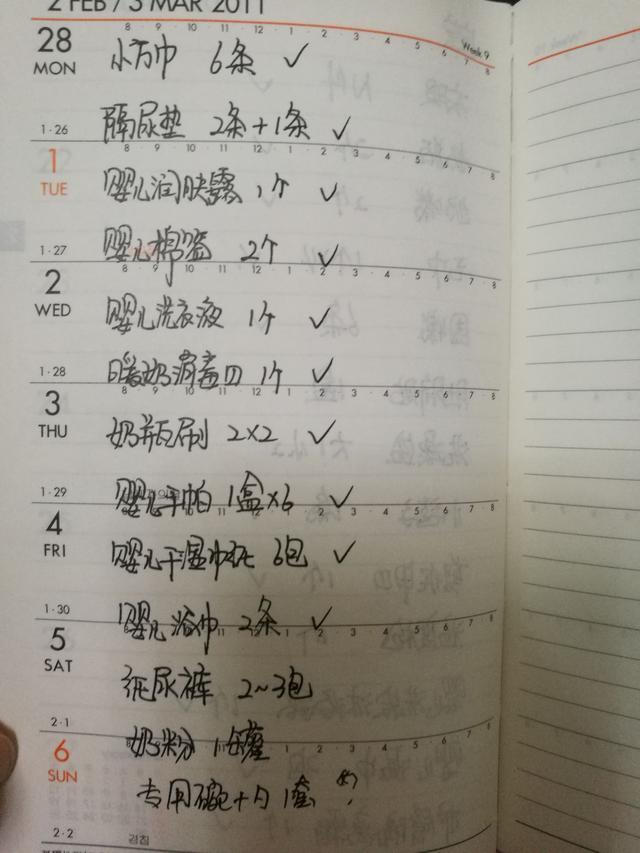 2 FEB / 3 MAR 2011
8 9 10 11 12 1 2 3 4 5 6 7 8
Week 9
28
MON
小方巾 6条 ✓
隔尿垫 2条+1条 ✓
1·26
8 9 10 11 12 1 2 3 4 5 6 7 8
1
TUE
婴儿润肤露 1个 ✓
婴儿棉签 2个 ✓
1·27
8 9 10 11 12 1 2 3 4 5 6 7 8
2
WED
婴儿洗衣液 1个 ✓
暖奶消毒 1个 ✓
1·28
8 9 10 11 12 1 2 3 4 5 6 7 8
3
THU
奶瓶刷 2×2 ✓
婴儿手帕 1盒×6 ✓
1·29
4
FRI
婴儿干湿巾 6包 ✓
婴儿浴巾 2条 ✓
1·30
5
SAT
纸尿裤 2~3包
奶粉 1罐
2·1
6
SUN
专用碗+勺 1套 ?
2·2
경칩